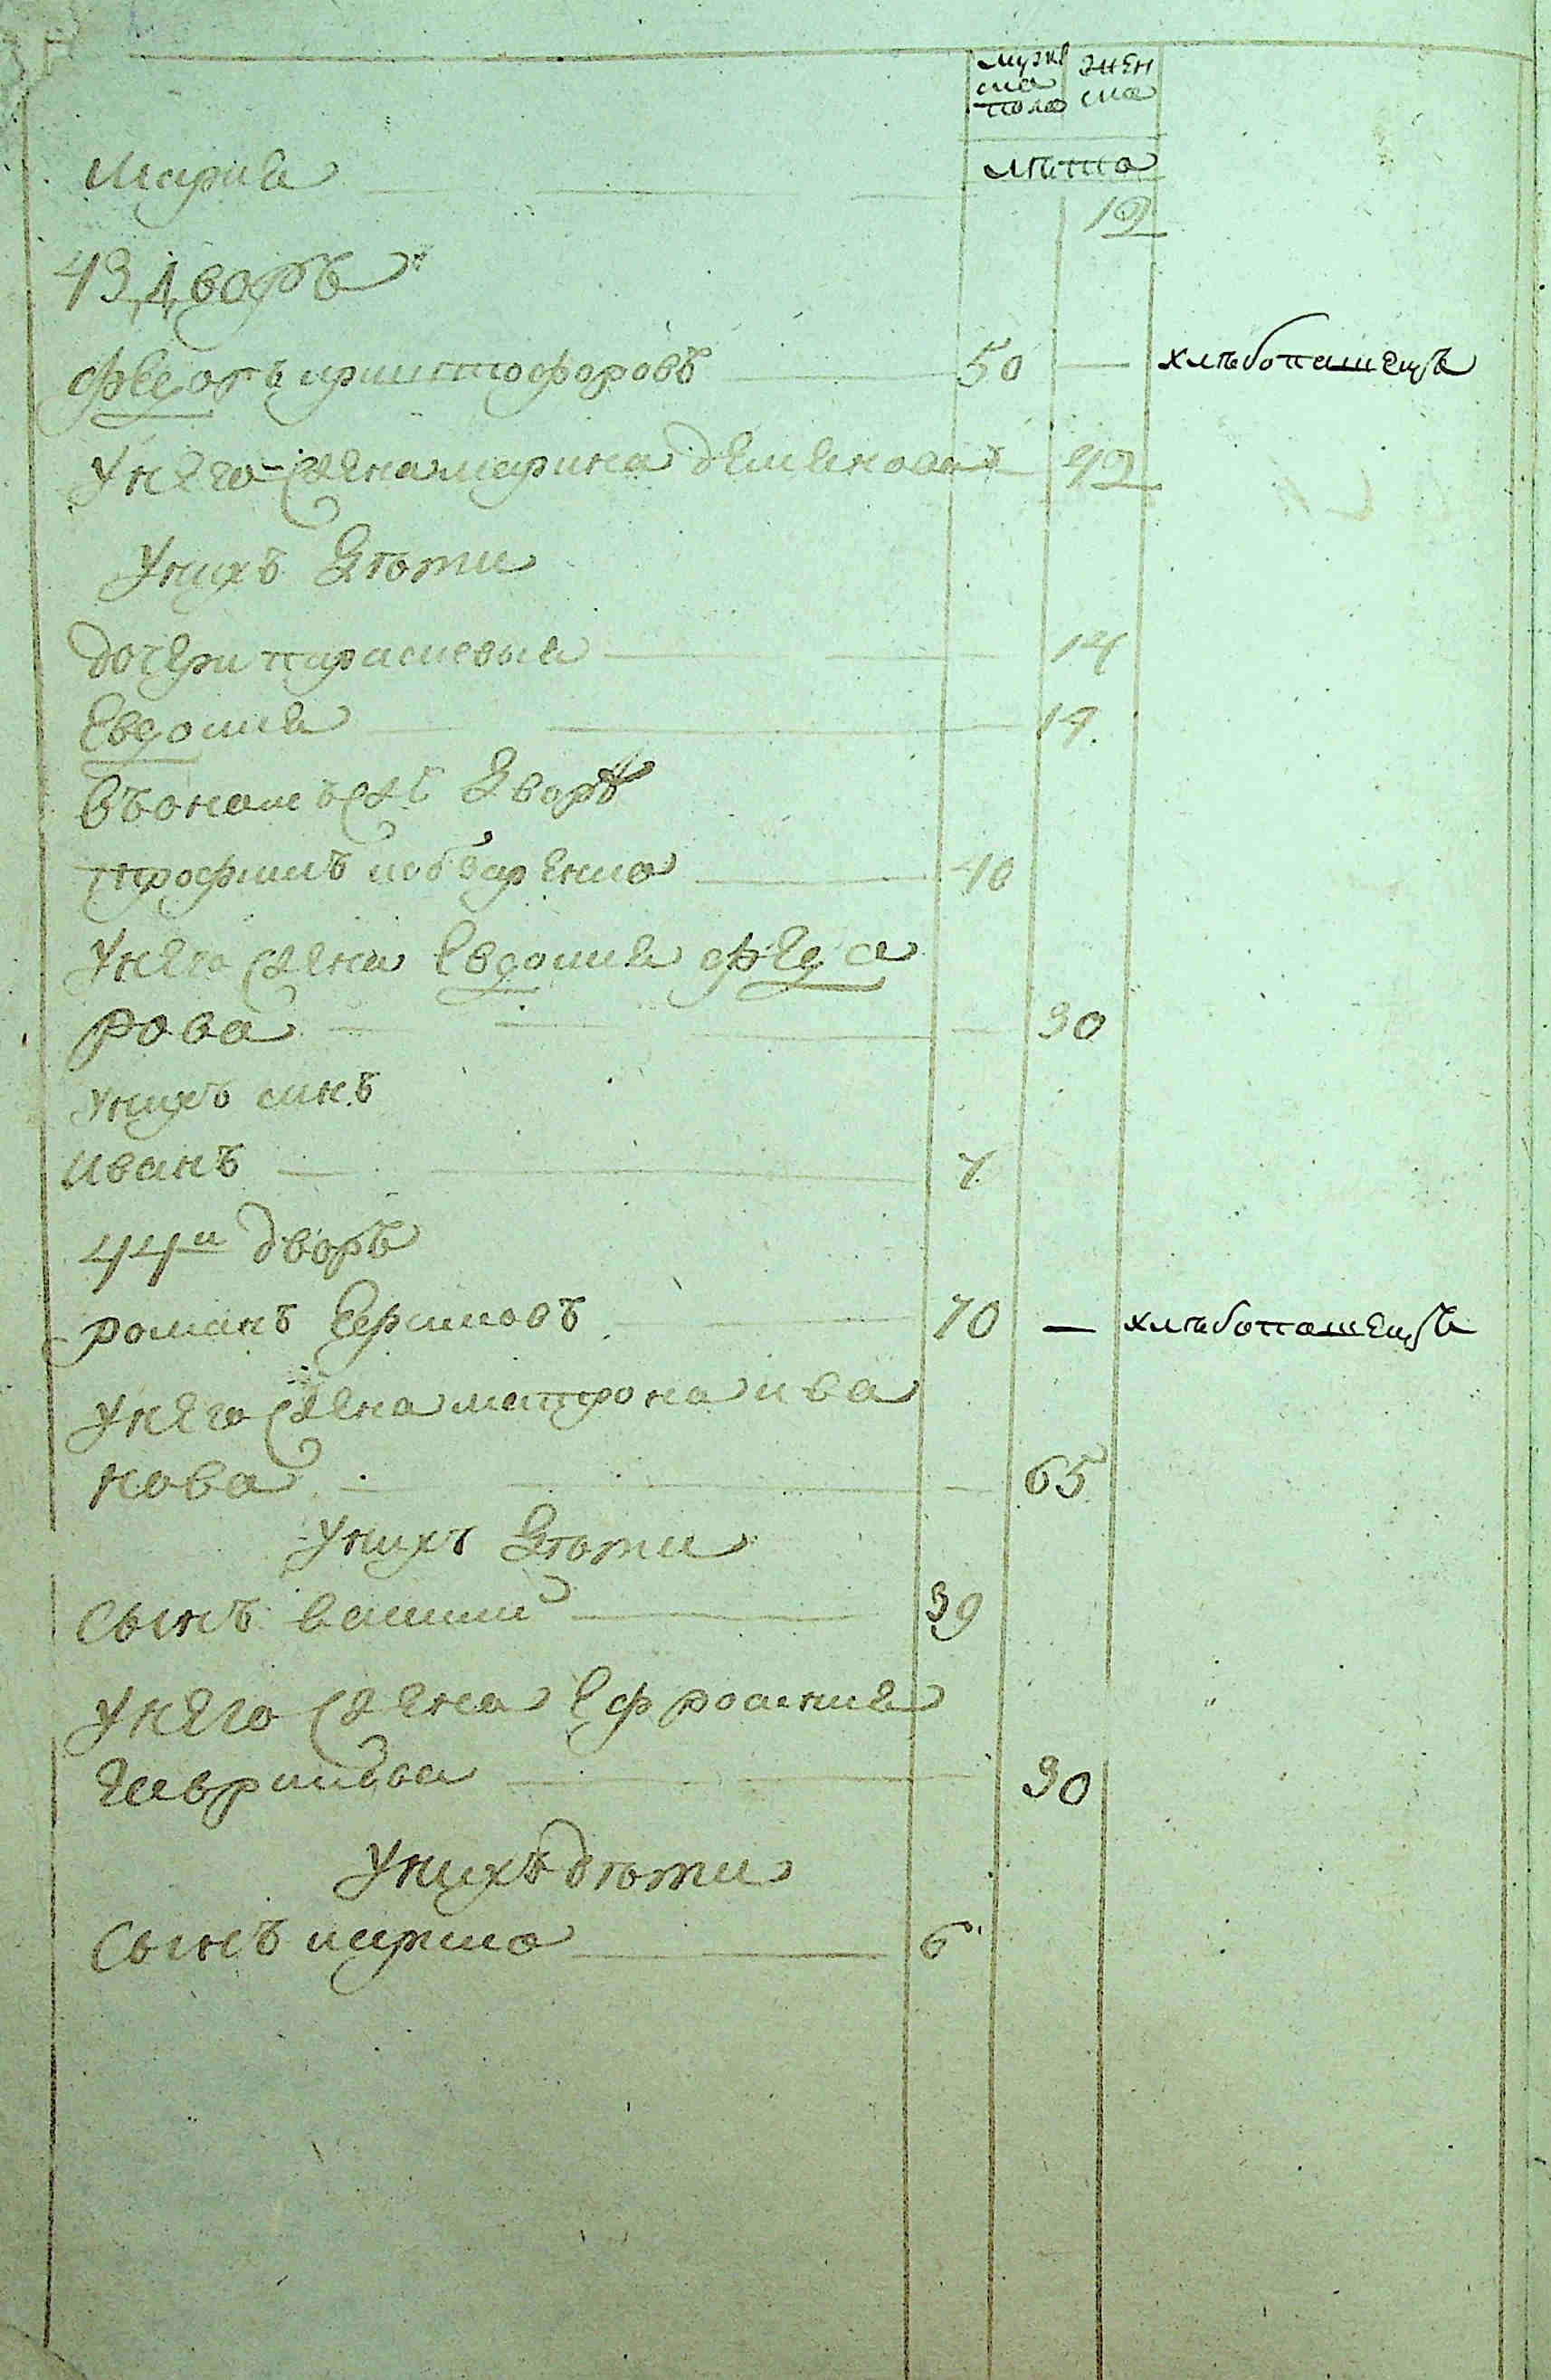 мужеска пола
женска
лѣта
Мария 12
43 Дворъ
Федоръ христофоровъ 50 — хлѣбопашецъ
У него жена марина 42
У нихъ Дѣти
дочери параскевия 14
Евдокия
въ ономъ же Дворѣ
трофимъ 40
У него жена Евдокия Федо
рова 30
У нихъ синъ
Иванъ
44й дворъ
романъ Ефимовъ 70 — хлѣбопашецъ
У него жена матрона ива
нова 65
У нихъ Дѣти
Сынъ василий 39
У него жена Ефросиния
Гаврилова 30
У нихъ дѣти
Сынъ кирило 6